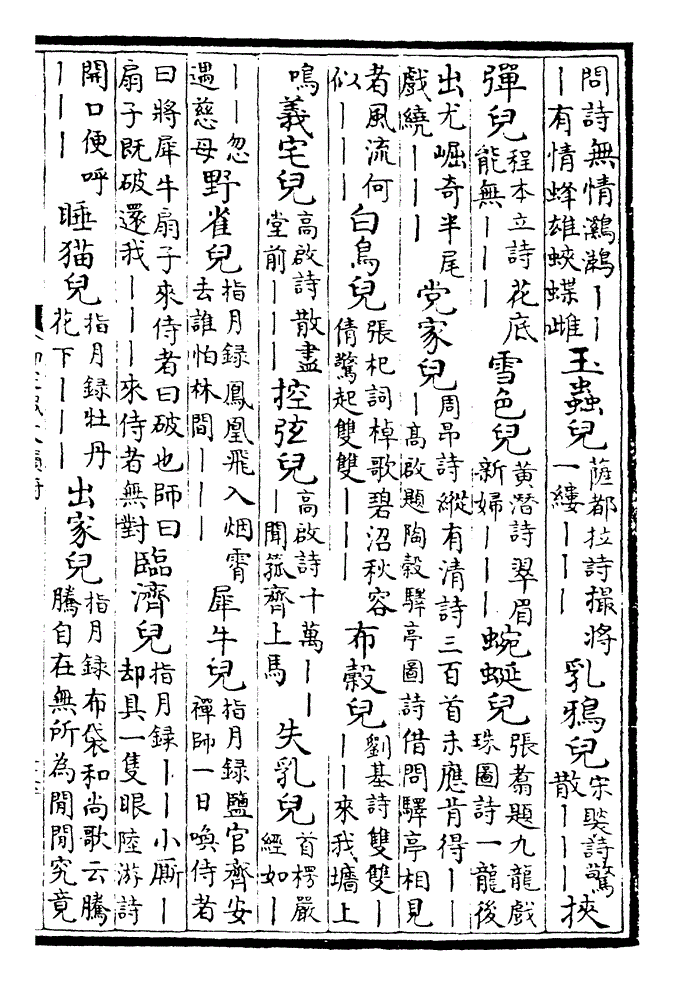 問詩無情鸂鶒丨丨丨有情蜂雄蛺蝶雌玉蟲兒薩都拉詩撮將一縷丨丨丨乳鴉兒宋褧詩驚散丨丨丨挾
彈兒程本立詩花底能無丨丨丨雪色兒黃潛詩翠眉新婦丨丨丨蜿蜒兒張翥題九龍戲珠圖詩一龍後
出尤崛奇半尾戲繞丨丨丨党家兒周昂詩縱有清詩三百首未應肯得丨丨丨高啟題陶穀驛亭圖詩借問驛亭相見
者風流何似丨丨丨白鳥兒張杞詞棹歌碧沼秋容倩驚起雙雙丨丨丨布穀兒劉基詩雙雙丨丨丨來我墻上
鳴義宅兒高啟詩散盡堂前丨丨丨控弦兒高啟詩十萬丨丨丨聞箛齊上馬失乳兒首楞嚴經如丨
丨丨忽遇慈母野雀兒指月録鳳凰飛入烟霄去誰怕林間丨丨丨犀牛兒指月録鹽官齊安禪師一日喚侍者
曰將犀牛扇子來侍者曰破也師曰扇子既破還我丨丨丨來侍者無對臨濟兒指月録丨丨小厮丨却具一隻眼陸游詩
開口便呼丨丨丨睡猫兒指月録牡丹花下丨丨丨出家兒指月録布袋和尚歌云騰騰自在無所為閒閒究竟